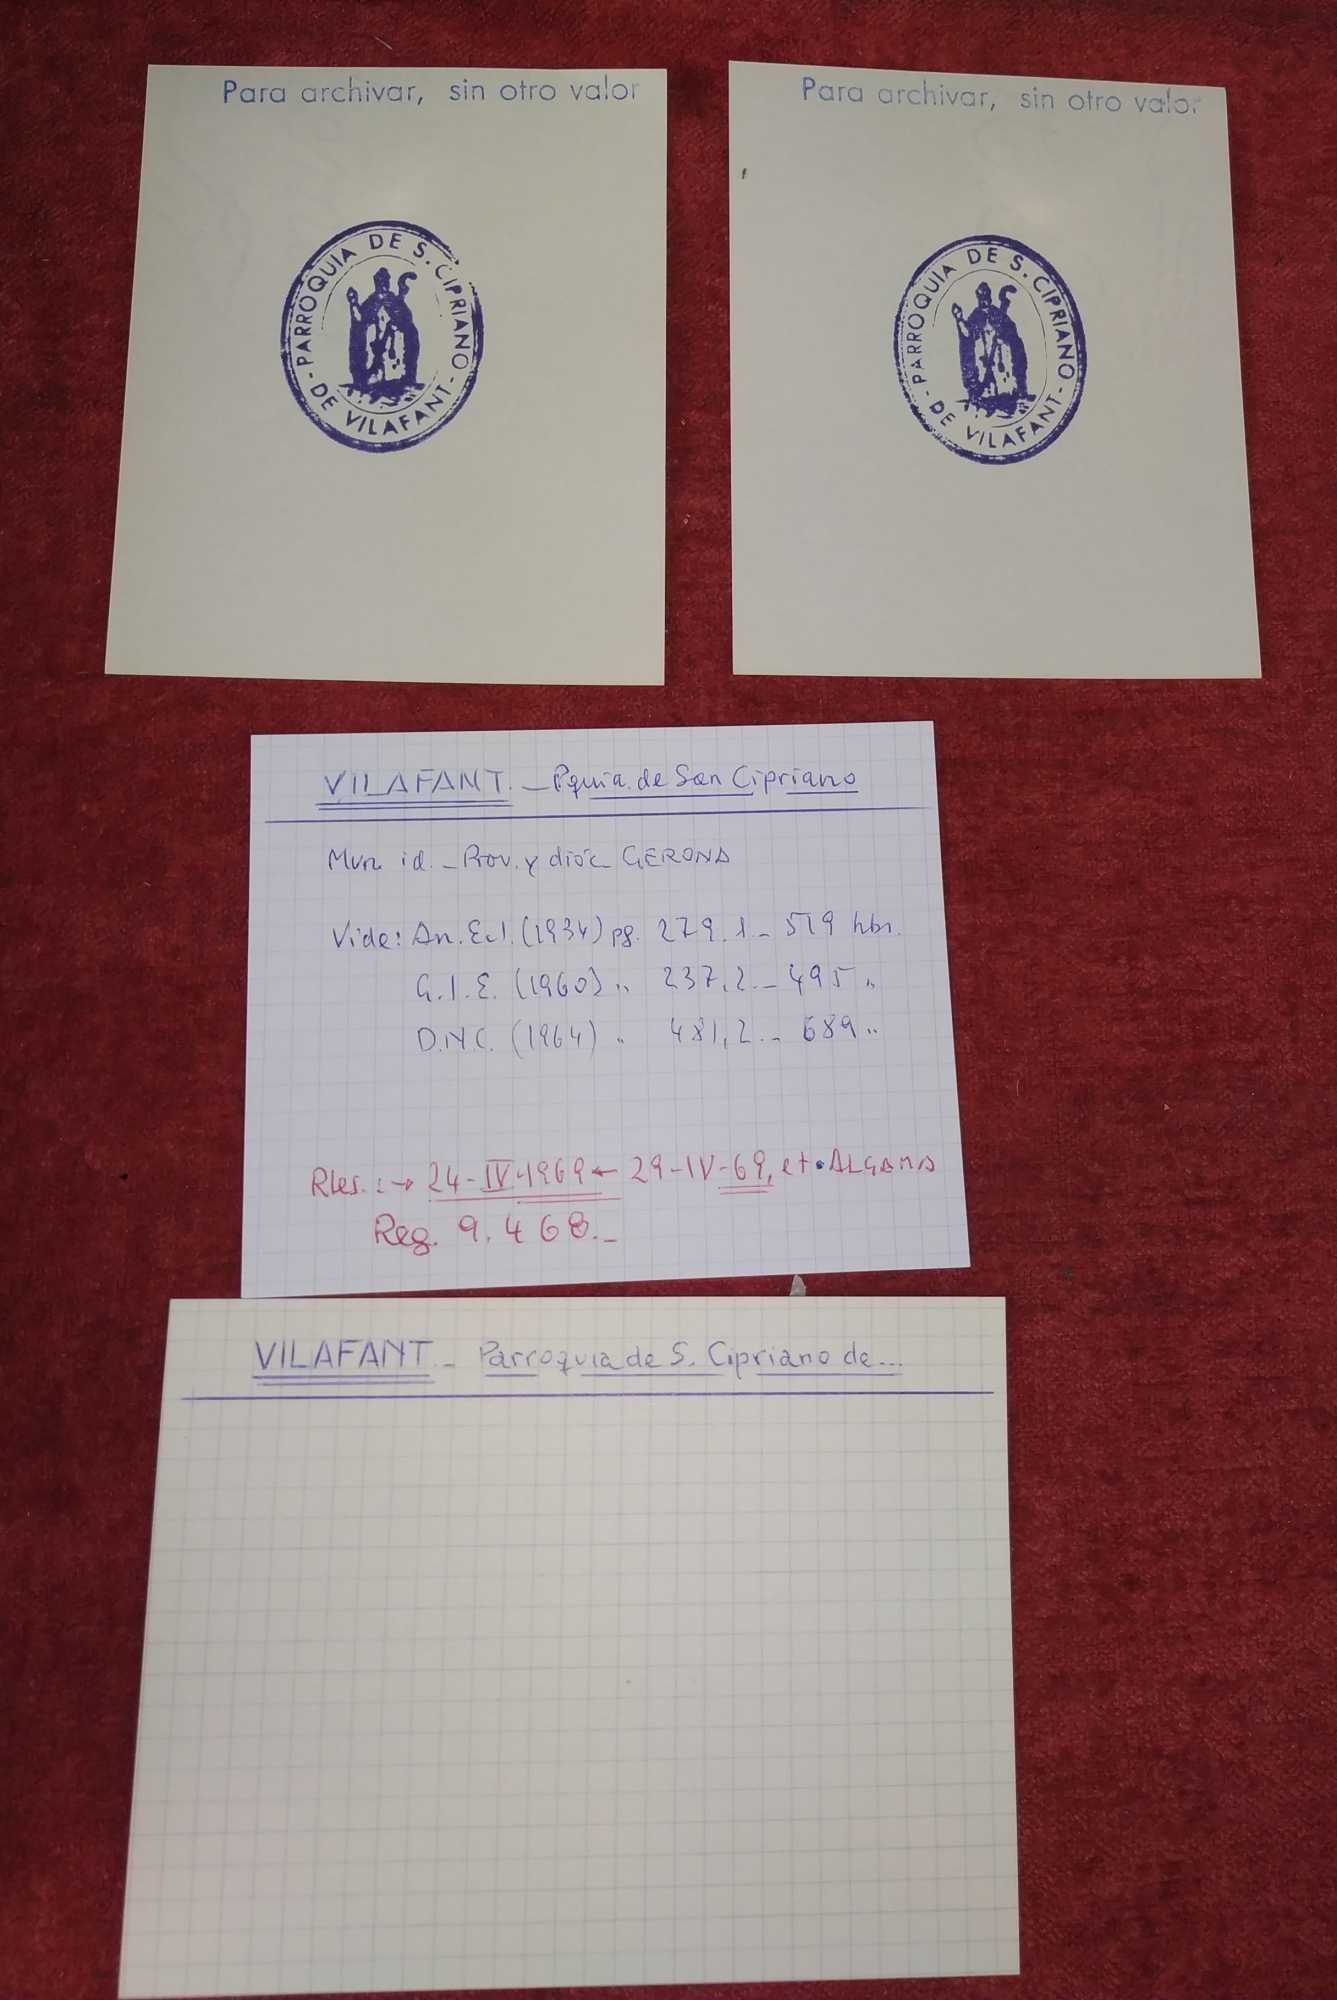 Para archivar, sin otro valor
- PARROQUIA DE S. CIPRIANO -
DE VILAFANT
Para archivar, sin otro valor
- PARROQUIA DE S. CIPRIANO -
DE VILAFANT
VILAFANT. - Pquia. de San Cipriano
Mun id. - Prov. y dióc GERONA
Vide: An. Ecl. (1934) pg. 279.1 - 519 hbn.
G.I.E. (1960) " 237,2. - 495 "
D.N.C. (1964) " 481,2. - 689 "
24-IV-1969 ← 29-IV-69, et • ALGAMA
Reg. 9.468.-
VILAFANT - Parroquia de S. Cipriano de...